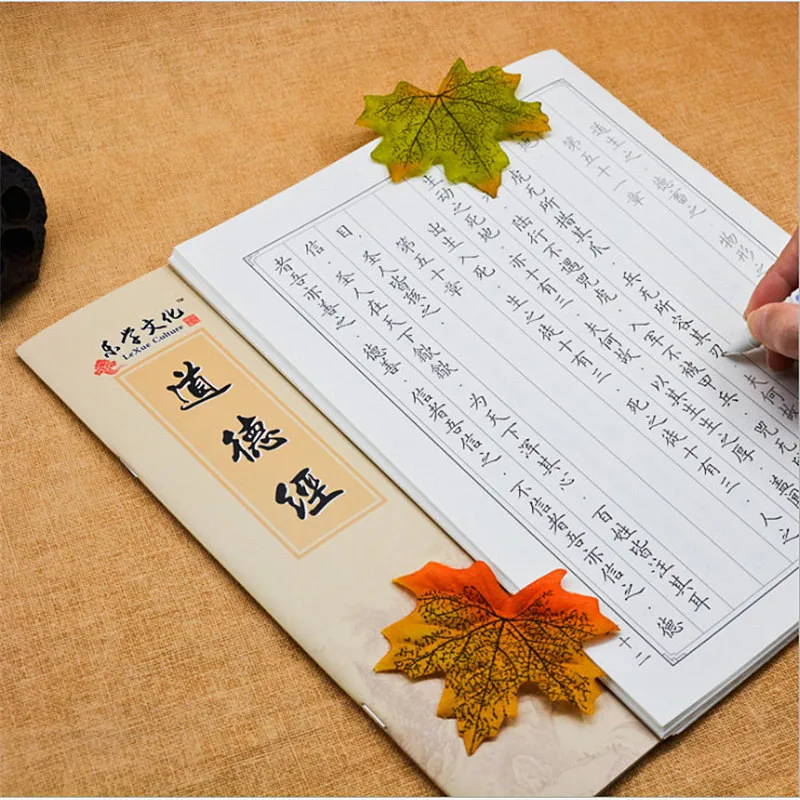 乐学文化
LeXue Culture
道德经
者吾亦善之.德善.信者吾信之.不信者吾亦信之.德
信.圣人在天下歙歙.为天下浑其心.百姓皆注其耳
目.圣人皆孩之.
第五十章
出生入死.生之徒十有三.死之徒十有三.人之
生动之死地.亦十有三.夫何故.以其生生之厚.盖闻
陆行不遇兕虎.入军不被甲兵.兕无
虎无所措其爪.兵无所容其刃.夫何
地
第五十一章
道生之.德畜之.物形之
十二